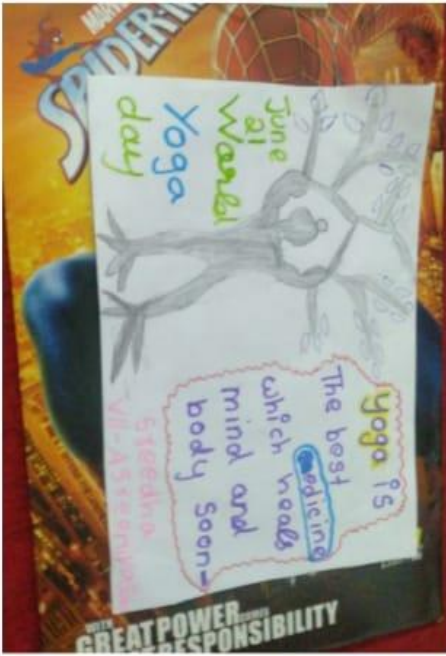 MARVEL
SPIDER-M
June
21
World
Yoga
day
Yoga is
The best
medicine
which heals
mind and
body soon
WITH
GREAT POWER COMES
RESPONSIBILITY